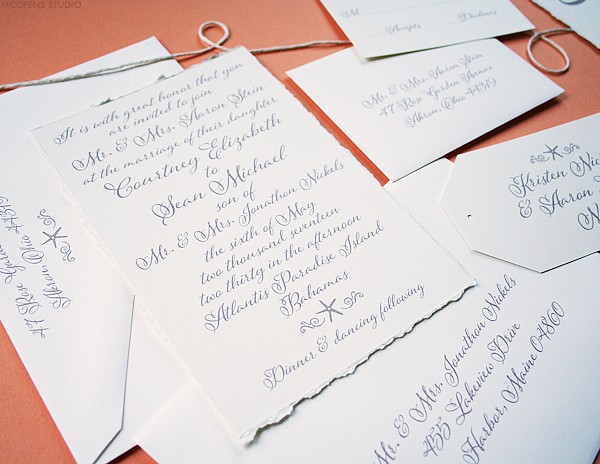 MOSPENS STUDIO
It is with great honor that you
are invited to join
Mr. & Mrs. Aaron Stein
at the marriage of their daughter
Courtney Elizabeth
to
Sean Michael
son of
Mr. & Mrs. Jonathon Nickels
the sixth of May
two thousand seventeen
two thirty in the afternoon
Atlantis Paradise Island
Bahamas
Dinner & dancing following
M
Accepts Declines
Mr. & Mrs. Aaron Stein
47 Rose Garden Avenue
Akron, Ohio 44319
Kristen
& Aaron
47 Rose
Akron Ohio
Mr. & Mrs. Jonathon Nickels
455 Lakeview Drive
Harbor, Maine 04860